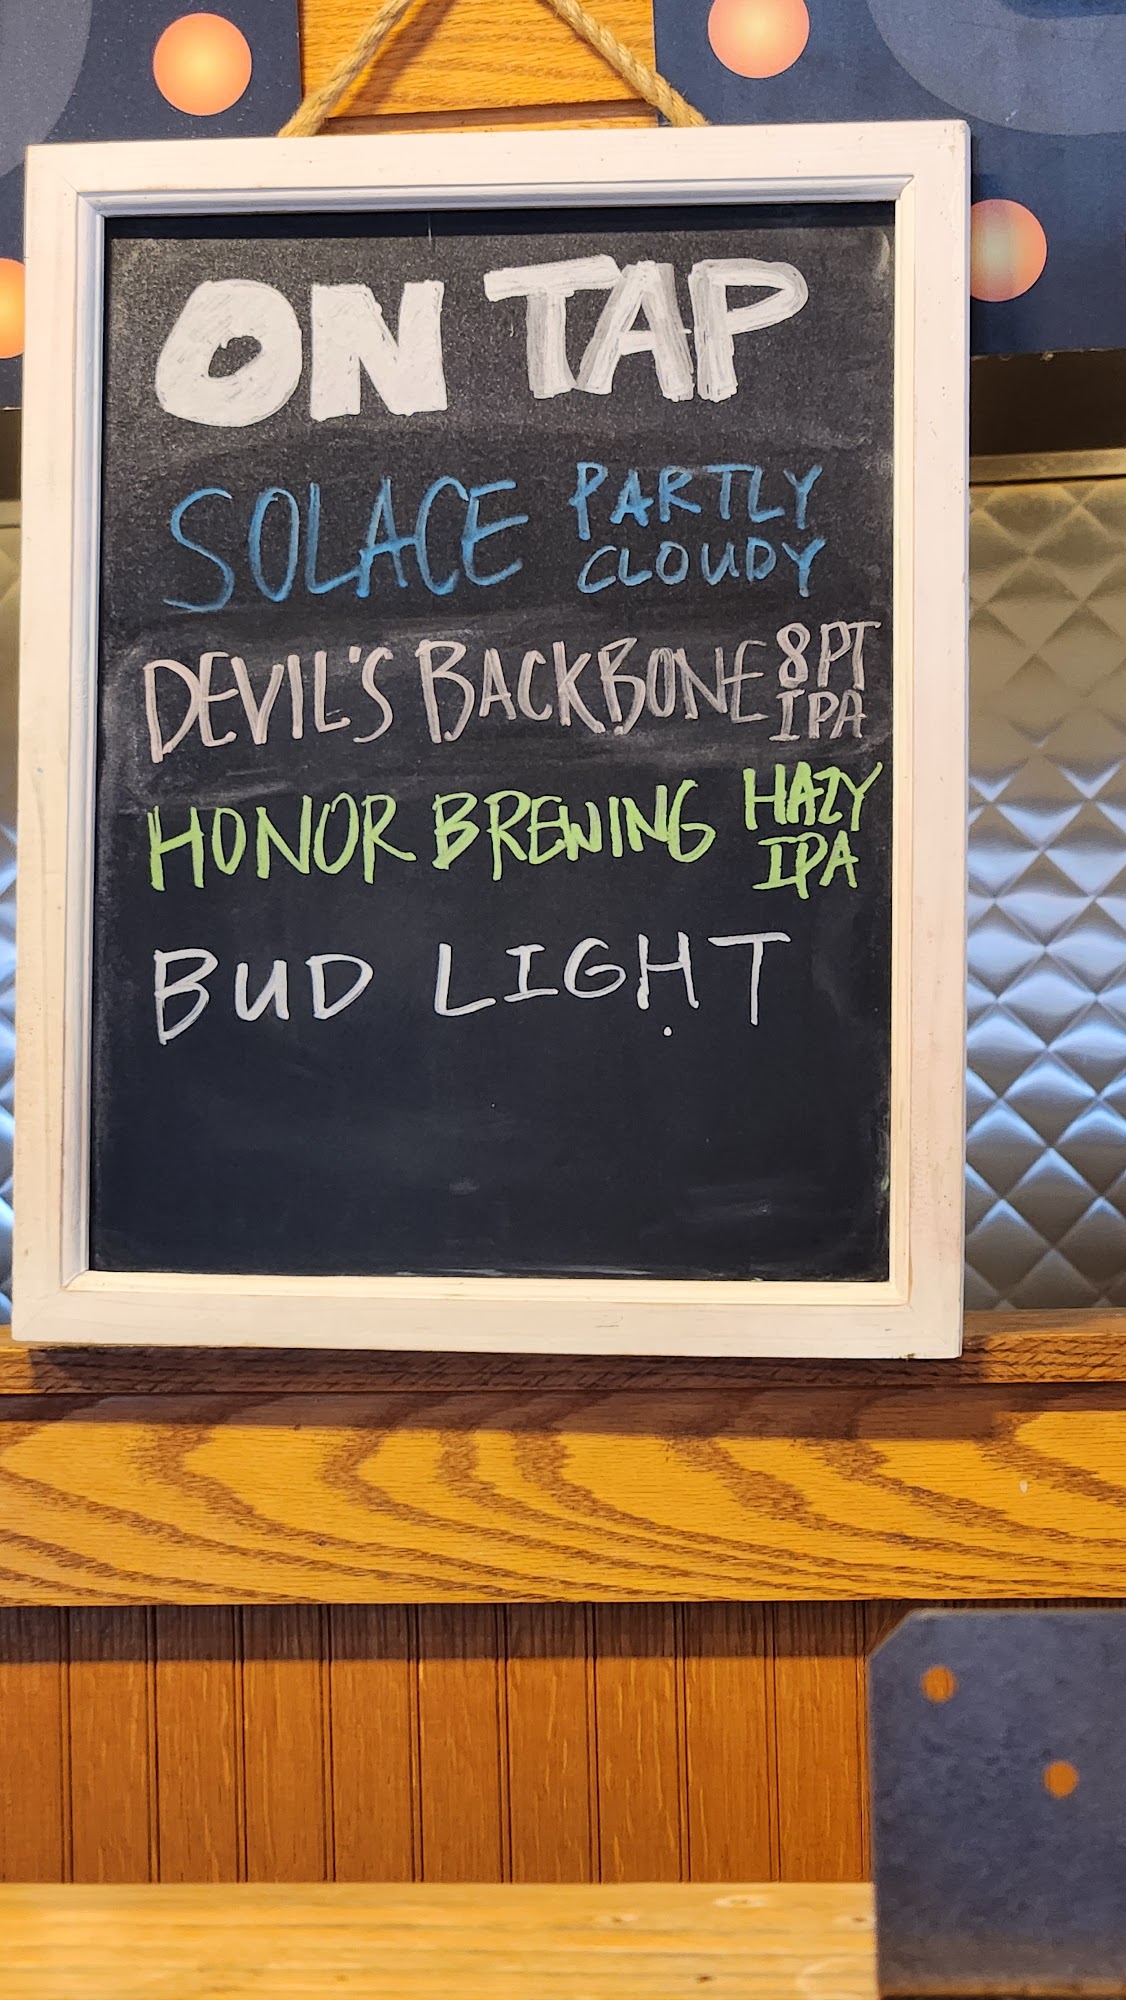 ON TAP
SOLACE PARTLY
CLOUDY
DEVIL'S BACKBONE 8PT
IPA
HONOR BREWING HAZY
IPA
BUD LIGHT